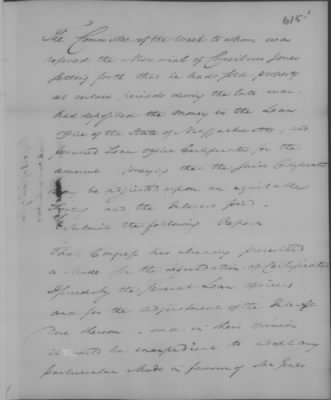 615
The Committee of the week to whom was
referred the Memorial of Jones
setting forth that he had sold property
at certain periods during the late war,
had deposited the money in the Loan
office of the State of Massachusetts, and
Loan office Certificates for the
amount, praying that the said Certificates
may be adjusted upon an equitable
and the Interest paid
Submit the following Report
That Congress has already prescribed
a mode for the liquidation of Certificates
Issued by the several Loan offices
and for the Adjustment of the Interest
due thereon and in their opinion
it would be inexpedient to adopt any
particular Mode in favour of Mr Jones